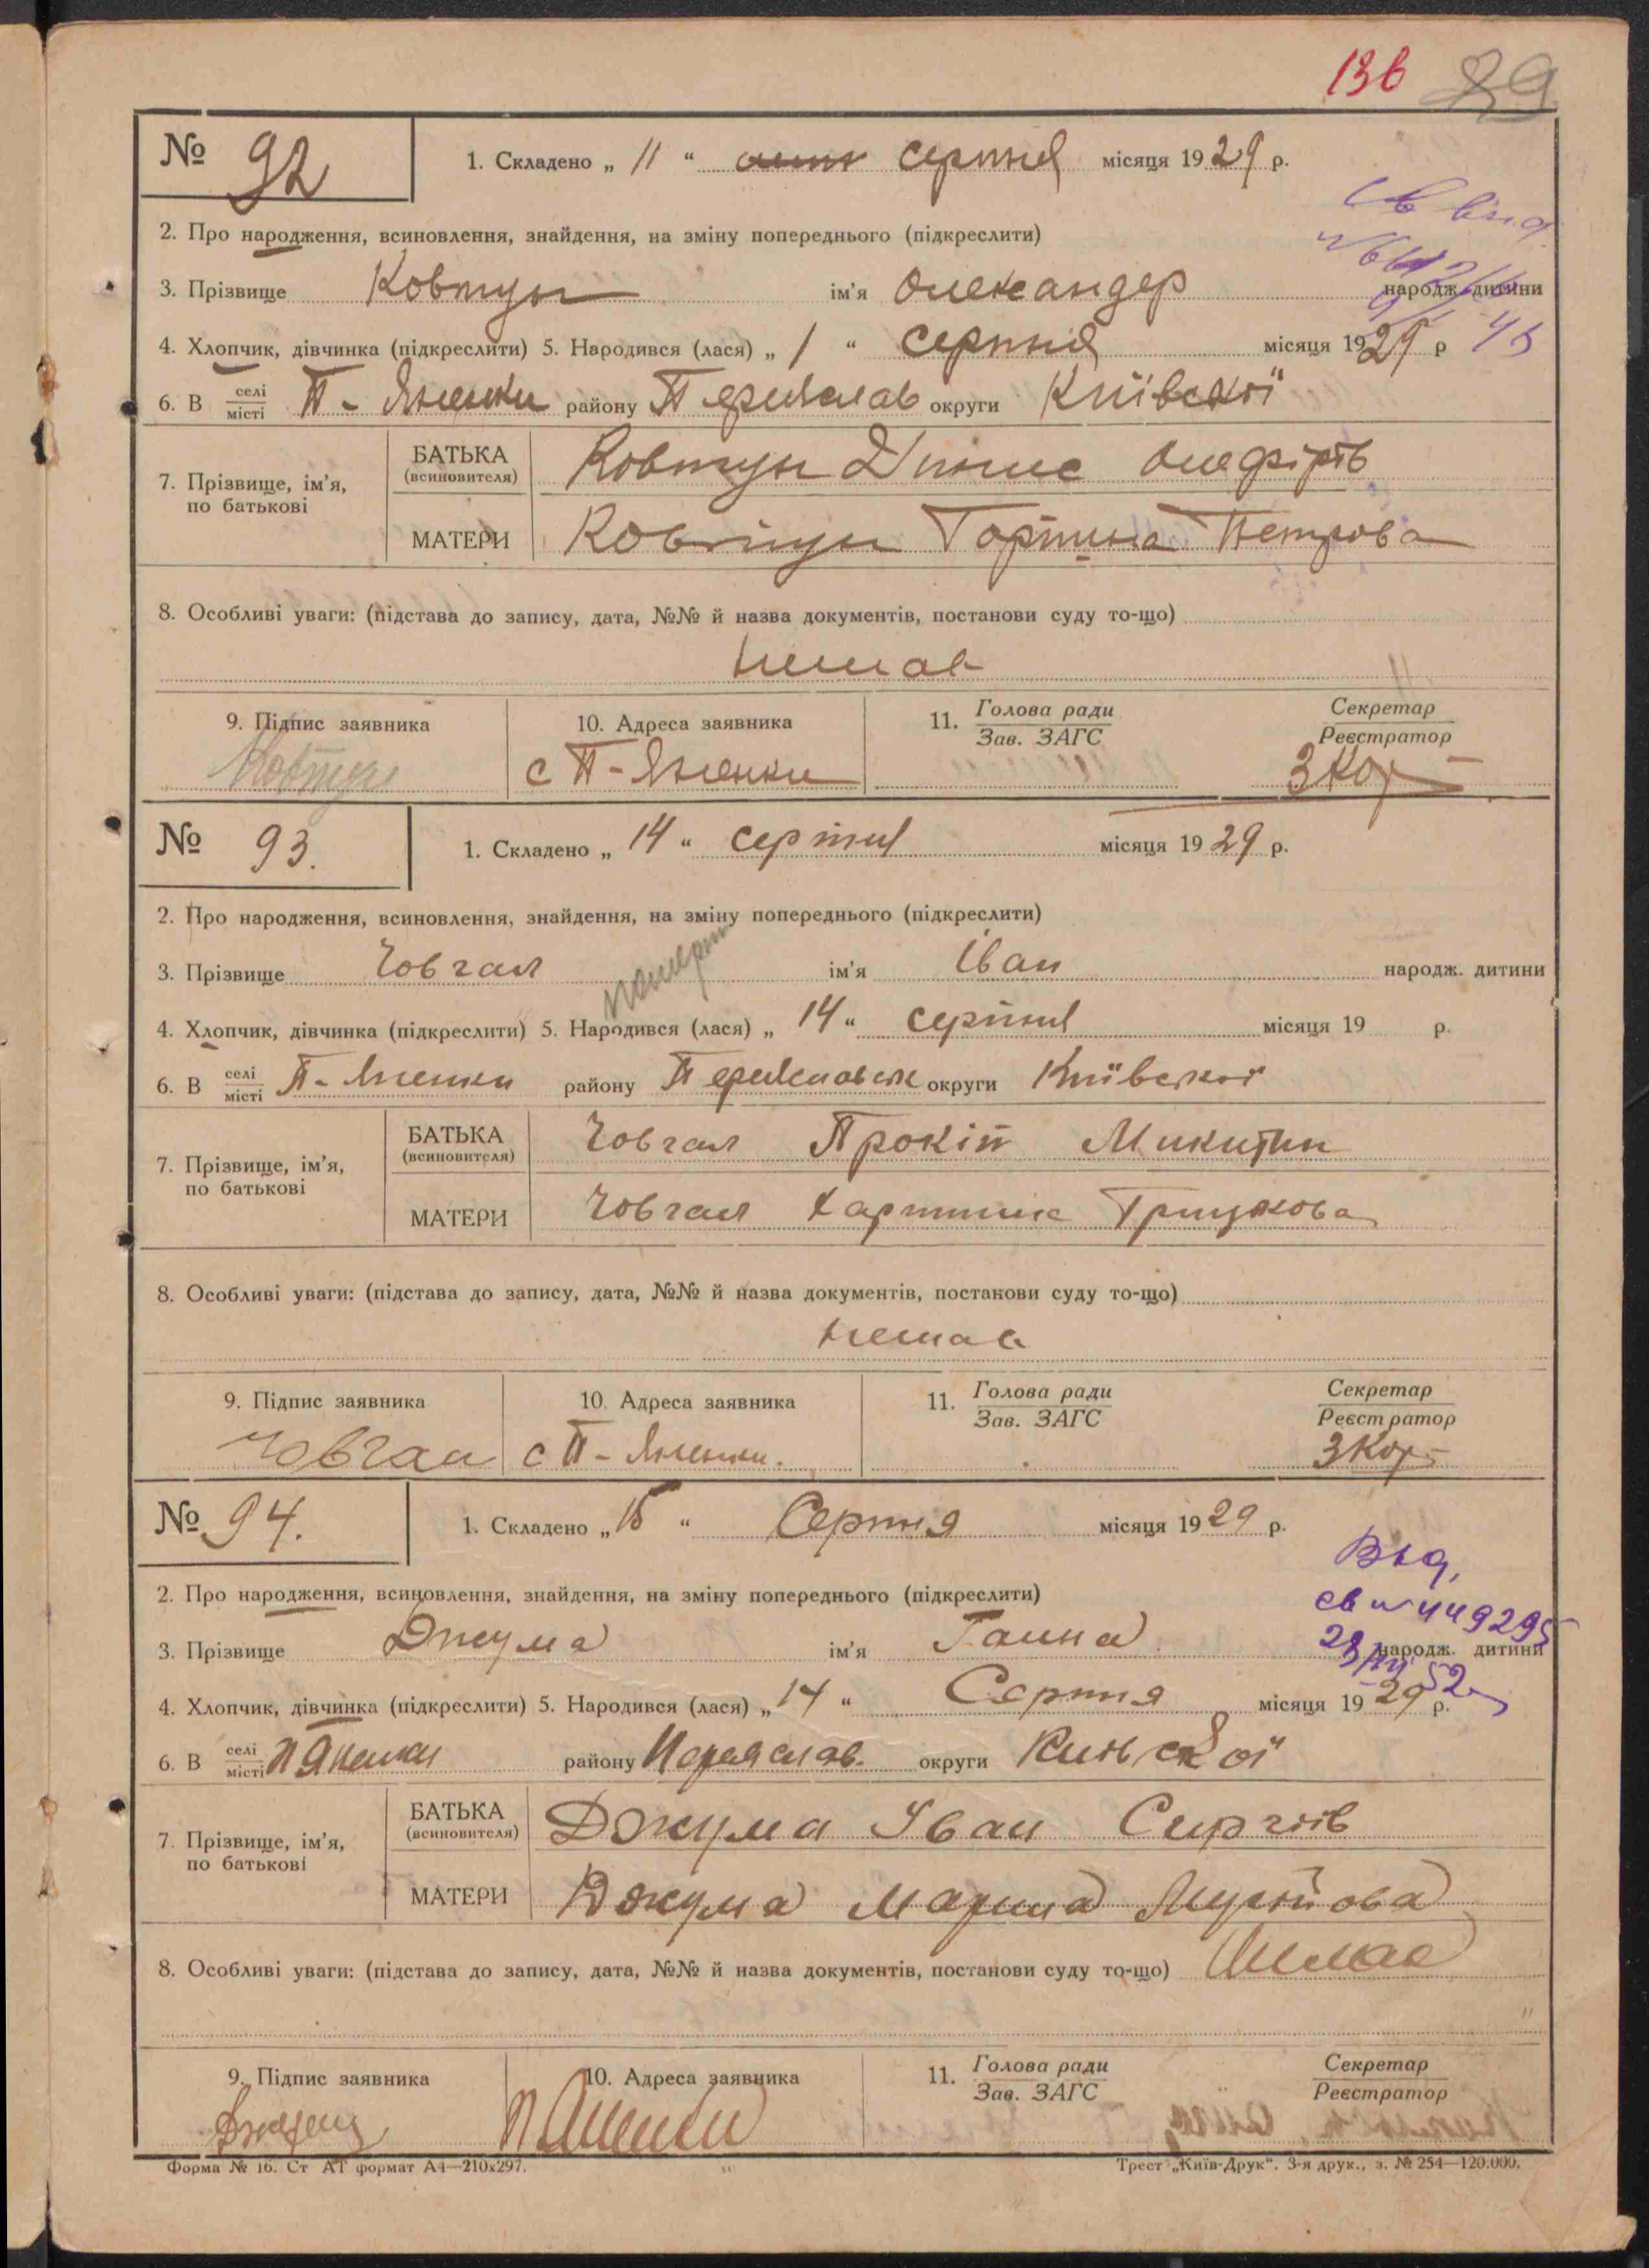 136 89
№ 92 1. Складено „ 11 “ серпня місяця 1929 р.
2. Про народження, всиновлення, знайдення, на зміну попереднього (підкреслити)
3. Прізвище Ковтун ім'я Олександер народж. дитини
4. Хлопчик, дівчинка (підкреслити) 5. Народився (лася) „ 1 “ серпня місяця 1929 р
6. В селі/місті П-Яненки району Переяслав округи Київської
БАТЬКА (всиновителя) Ковтун Олефірів
7. Прізвище, ім'я, по батькові
МАТЕРИ Ковтун Горпина Петрова
8. Особливі уваги: (підстава до запису, дата, №№ й назва документів, постанови суду то-що)
немає
9. Підпис заявника 10. Адреса заявника 11. Голова ради/Зав. ЗАГС Секретар/Реєстратор
Ковтун с П-Яненки ЗКор
№ 93. 1. Складено „ 14 “ серпня місяця 1929 р.
2. Про народження, всиновлення, знайдення, на зміну попереднього (підкреслити)
помер
3. Прізвище Човгал ім'я Іван народж. дитини
4. Хлопчик, дівчинка (підкреслити) 5. Народився (лася) „ 14 “ серпня місяця 19 р.
6. В селі/місті П-Яненки району Переяславськ округи Київської
БАТЬКА (всиновителя) Човгал Прокіп Микитин
7. Прізвище, ім'я, по батькові
МАТЕРИ Човгал Грицкова
8. Особливі уваги: (підстава до запису, дата, №№ й назва документів, постанови суду то-що)
немає
9. Підпис заявника 10. Адреса заявника 11. Голова ради/Зав. ЗАГС Секретар/Реєстратор
Човгал с П-Яненки. ЗКор
№ 94. 1. Складено „ 15 “ Серпня місяця 1929 р.
Выд,
2. Про народження, всиновлення, знайдення, на зміну попереднього (підкреслити)
св № 449295
3. Прізвище Джума ім'я Ганна народж. дитини
4. Хлопчик, дівчинка (підкреслити) 5. Народився (лася) „ 14 “ Серпня місяця 1929 р.
6. В селі/місті П Яненки району Переяслав. округи
БАТЬКА (всиновителя) Джума Іван Сиргіїв
7. Прізвище, ім'я, по батькові
МАТЕРИ Джума Марина
8. Особливі уваги: (підстава до запису, дата, №№ й назва документів, постанови суду то-що) Нимає
9. Підпис заявника 10. Адреса заявника 11. Голова ради/Зав. ЗАГС Секретар/Реєстратор
П Яненки
Форма № 16. Ст АТ формат А4—210x297. Трест „Київ-Друк“. 3-я друк., з. № 254—120.000.